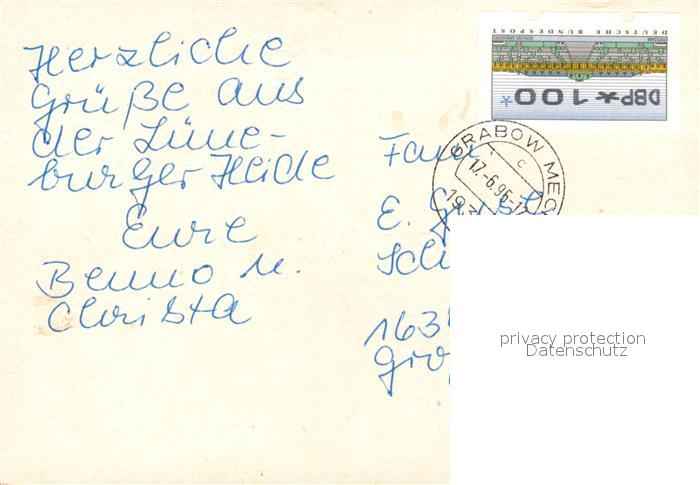 Herzliche
Grüße aus
der Lüne-
burger Heide
Eure
Benno u.
Christa
DEUTSCHE BUNDESPOST
DBP*100*
GRABOW MECK
c
17.-6.96-17
193
Fam.
E.
163
privacy protection
Datenschutz